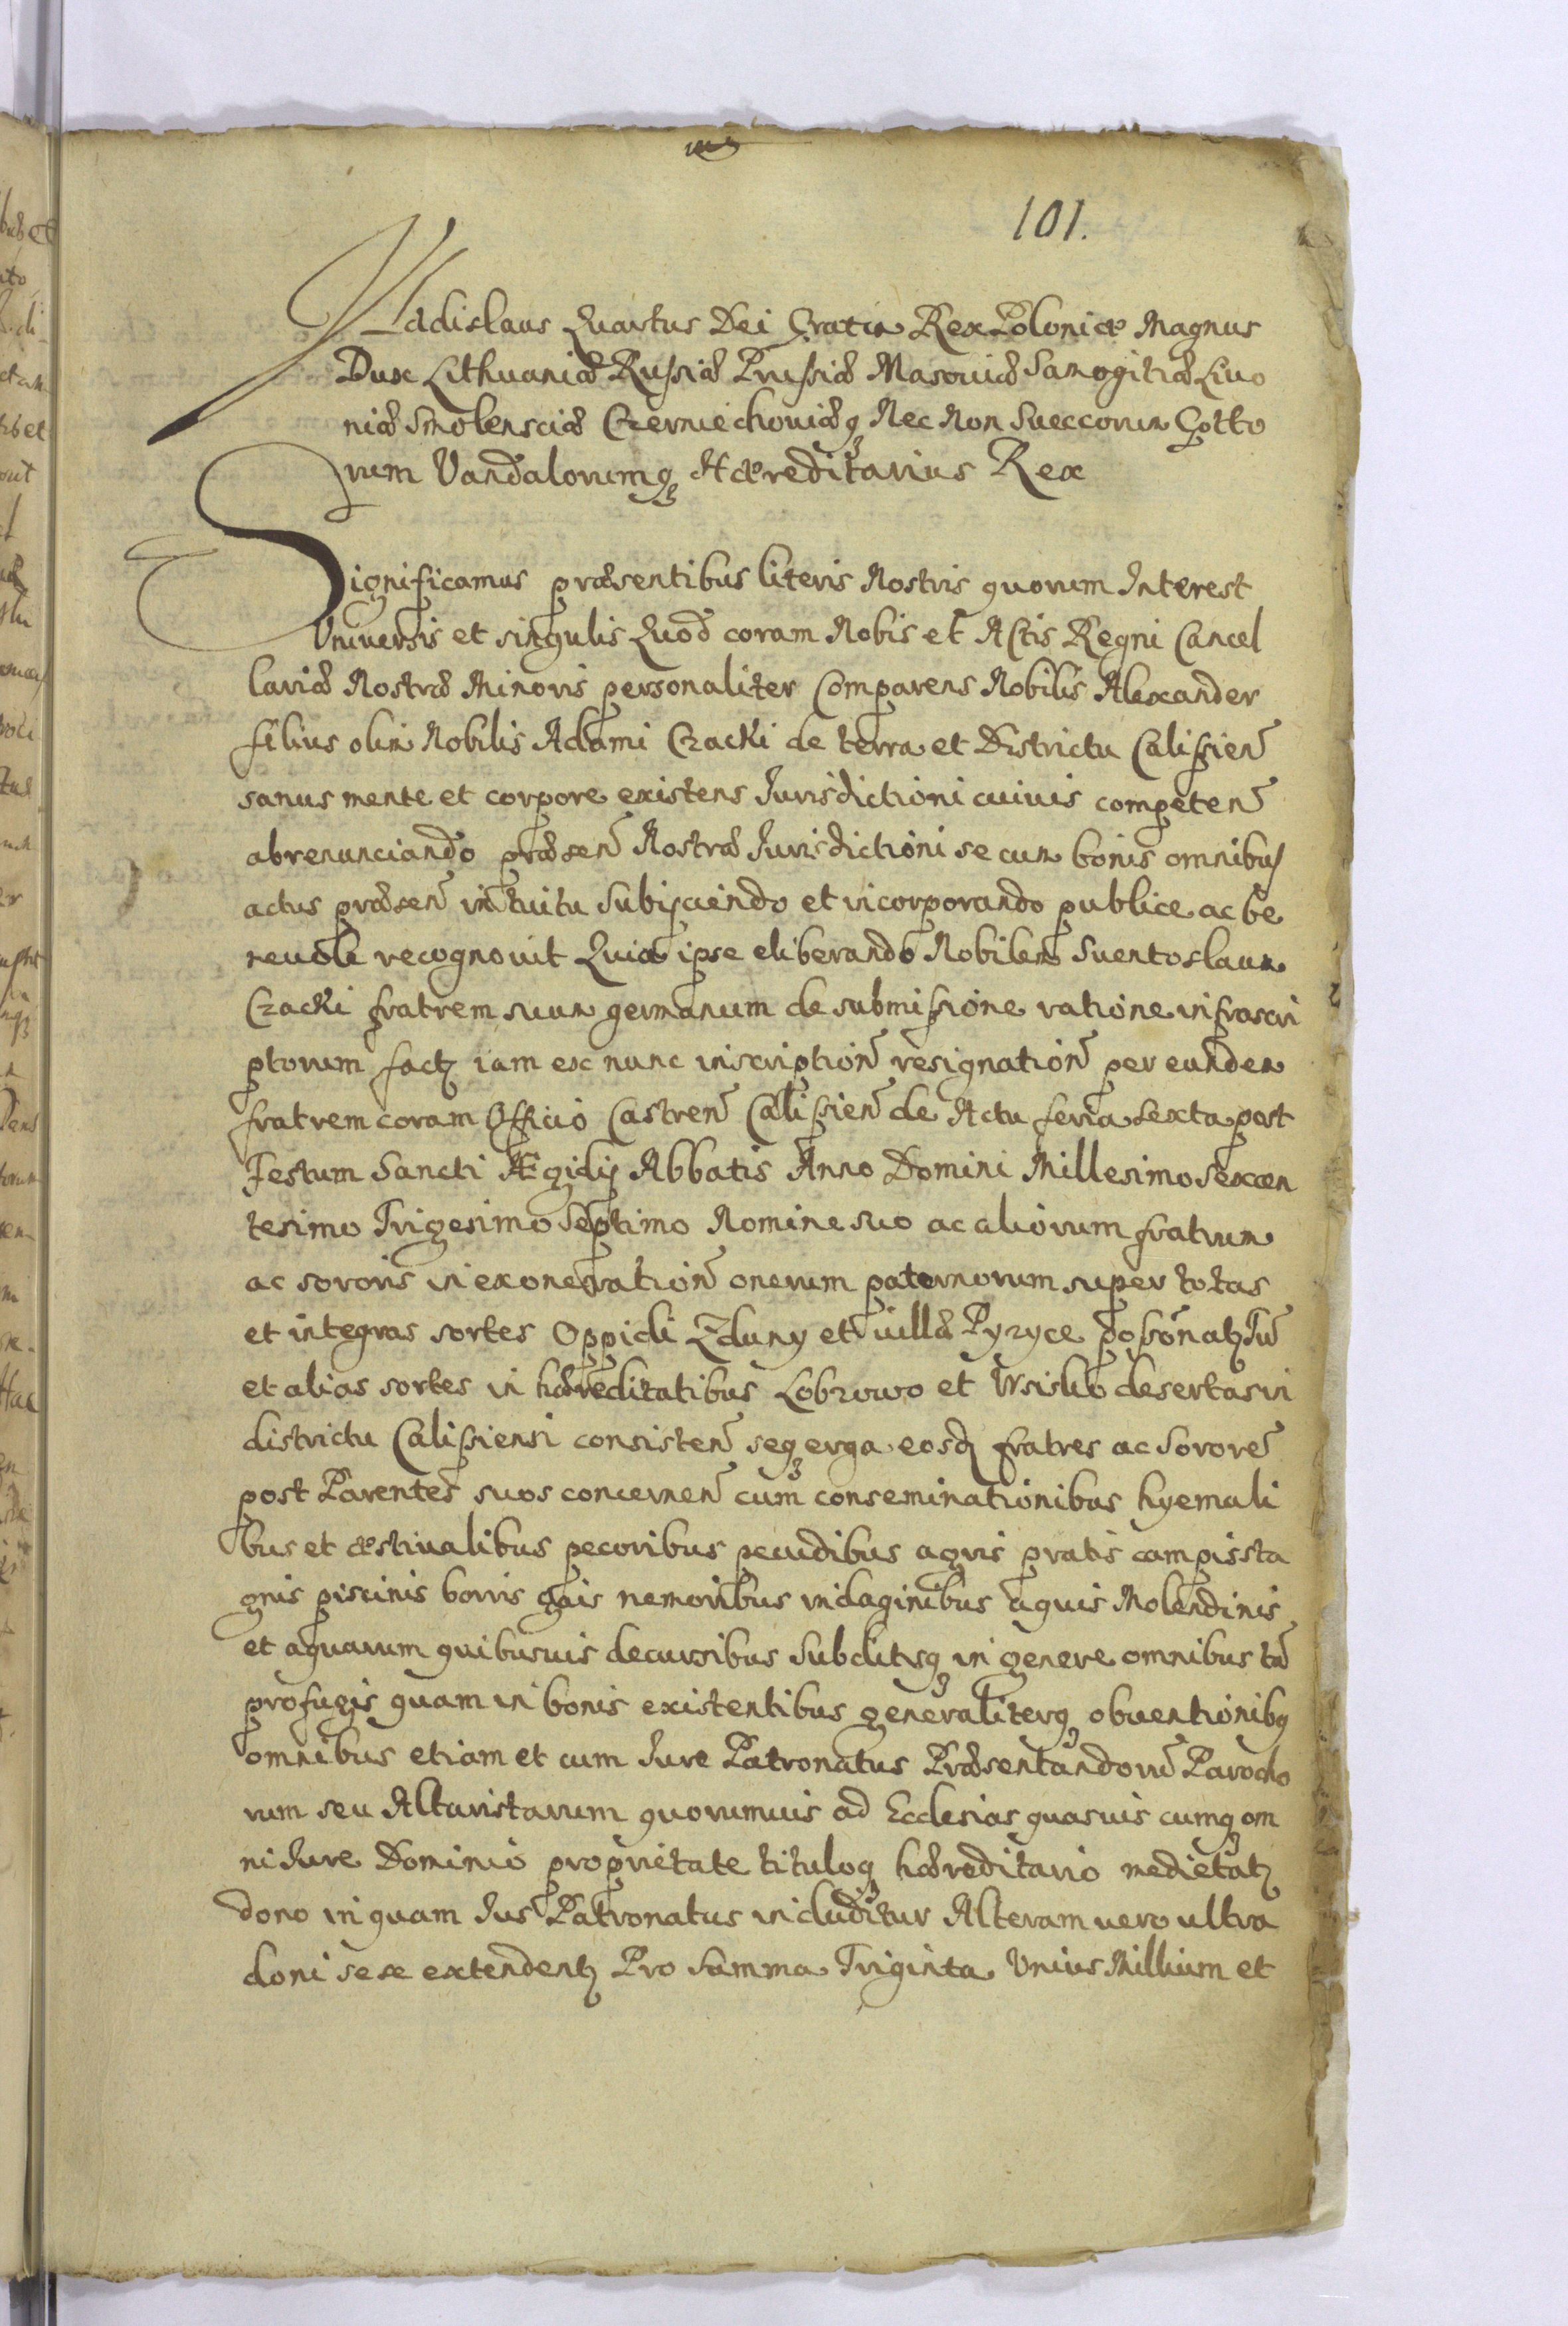 101.
Vladislaus Quartus Dei Gratia Rex Poloniæ Magnus
Dux Lithuaniæ Russiæ Prussiæ Masouiæ Samogitiæ Liuo
niæ Smolensciæ Czerniechouiæq Nec Non Sueccorum Gotto
rum Vandalorumq Hæreditarius Rex
Significamus præsentibus literis Nostris quorum Interest
Vniuersis et singulis Quod coram Nobis et Actis Regni Cancel
lariæ Nostræ Minoris personaliter Comparens Nobilis Alexander
filius olim Nobilis Adami Czacki de terra et Districtu Calissien
sanus mente et corpore existens Jurisdictioni cuiuis competen
abrenunciando præsen Nostræ Jurisdictioni se cum bonis omnibus
actus præsen intuitu subijciendo et incorporando publice ac be
neuole recognouit Quia ipse eliberando Nobilem Suentoslaum
Czacki fratrem suum germanum de submissione ratione infrascri
ptorum fact iam ex nunc inscription resignation per eundem
fratrem coram Officio Castren Calissien de Actu feria sexta post
Festum Sancti Ægidij Abbatis Anno Domini Millesimo Sexcen
tesimo Trigesimo Septimo Nomine suo ac aliorum fratrum
ac sororis in exoneration onerum paternorum super totas
et integras sortes Oppidi Zduny et villæ Pyzyce
et alias sortes in hæreditatibus Lobzowo et desertas in
districtu Calissiensi consisten seq erga eosd fratres ac Sorore
post Parentes suos concernen cum conseminationibus hyemali
bus et æstiualibus pecoribus pecudibus agris pratis campis sta
gnis piscinis borris gais nemoribus indaginibus aquis Molendinis
et aquarum quibusuis decursibus Subditisq in genere omnibus tam
profugis quam in bonis existentibus generaliterq obuentionibq
omnibus etiam et cum Jure Patronatus Præsentandoru Parocho
rum seu Altaristarum quorumuis ad Ecclesias quasuis cumq om
ni Jure Dominio proprietate tituloq hæreditario medietat
dono in quam Jus Patronatus includitur Alteram uero ultra
doni sese extendent Pro Summa Triginta Vnius Millium et